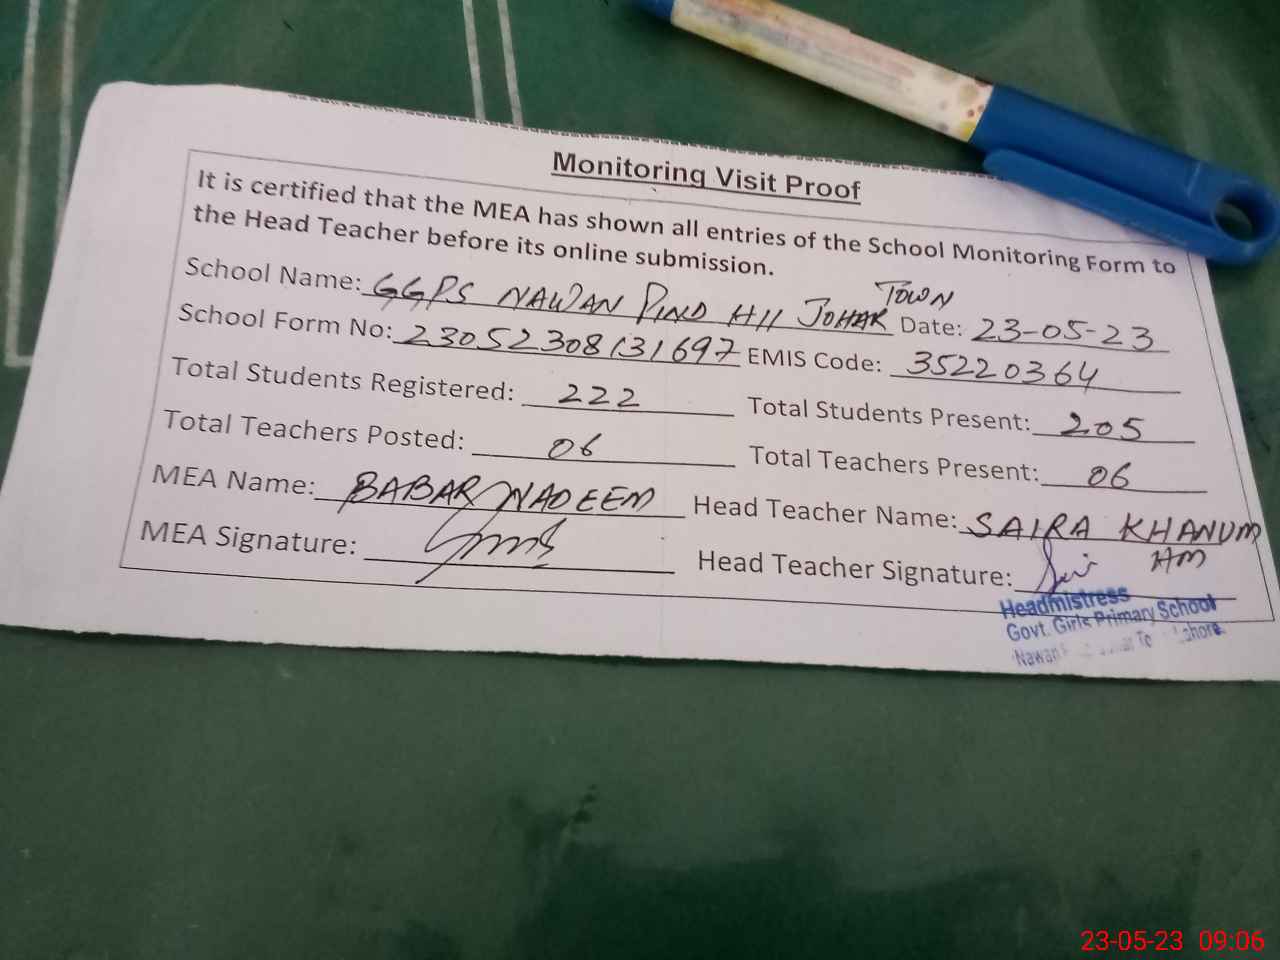 Monitoring Visit Proof
It is certified that the MEA has shown all entries of the School Monitoring Form to
the Head Teacher before its online submission.
School Name: GGPS NAWAN PIND HII JOHAR TOWN Date: 23-05-23
School Form No: 23052308131697 EMIS Code: 35220364
Total Students Registered: 222 Total Students Present: 205
Total Teachers Posted: 06 Total Teachers Present: 06
MEA Name: BABAR NADEEM Head Teacher Name: SAIRA KHANUM
MEA Signature: Head Teacher Signature: HM
Headmistress
Govt. Girls Primary School
Nawan
23-05-23 09:06